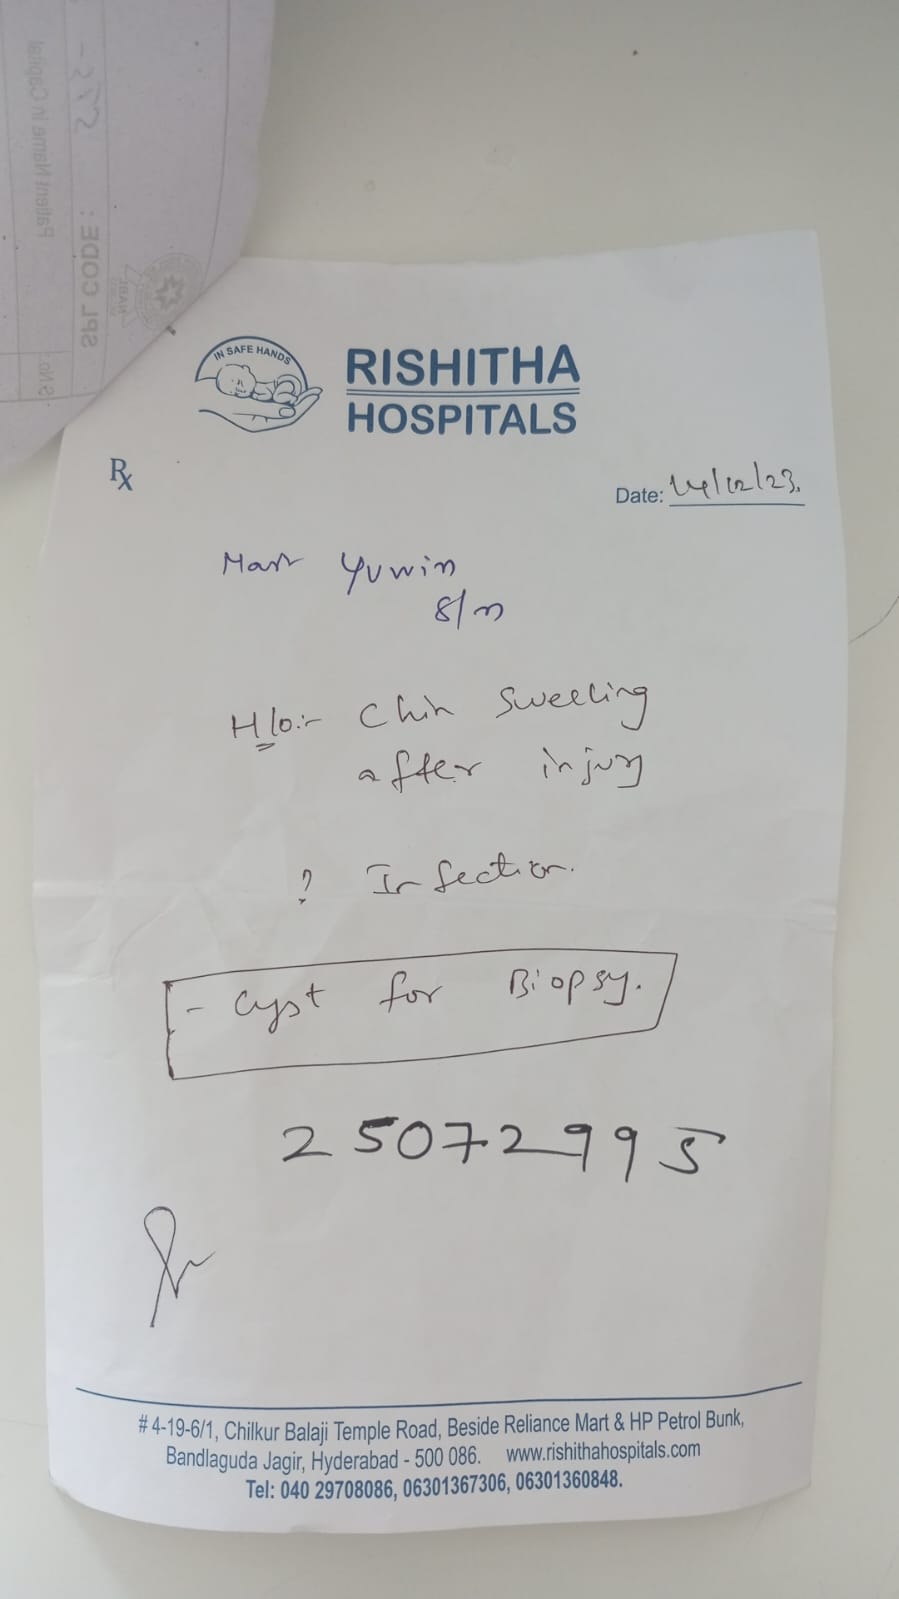 Patient Name in Capital
SPL CODE :
S.No.
IN SAFE HANDS
RISHITHA
HOSPITALS
Rx
Date: 14/12/23.
Mast Yuwin
8/m
H/o:- Chin Sweeling
after injury
? Infection.
- Cyst for Biopsy.
25072995
# 4-19-6/1, Chilkur Balaji Temple Road, Beside Reliance Mart & HP Petrol Bunk,
Bandlaguda Jagir, Hyderabad - 500 086. www.rishithahospitals.com
Tel: 040 29708086, 06301367306, 06301360848.